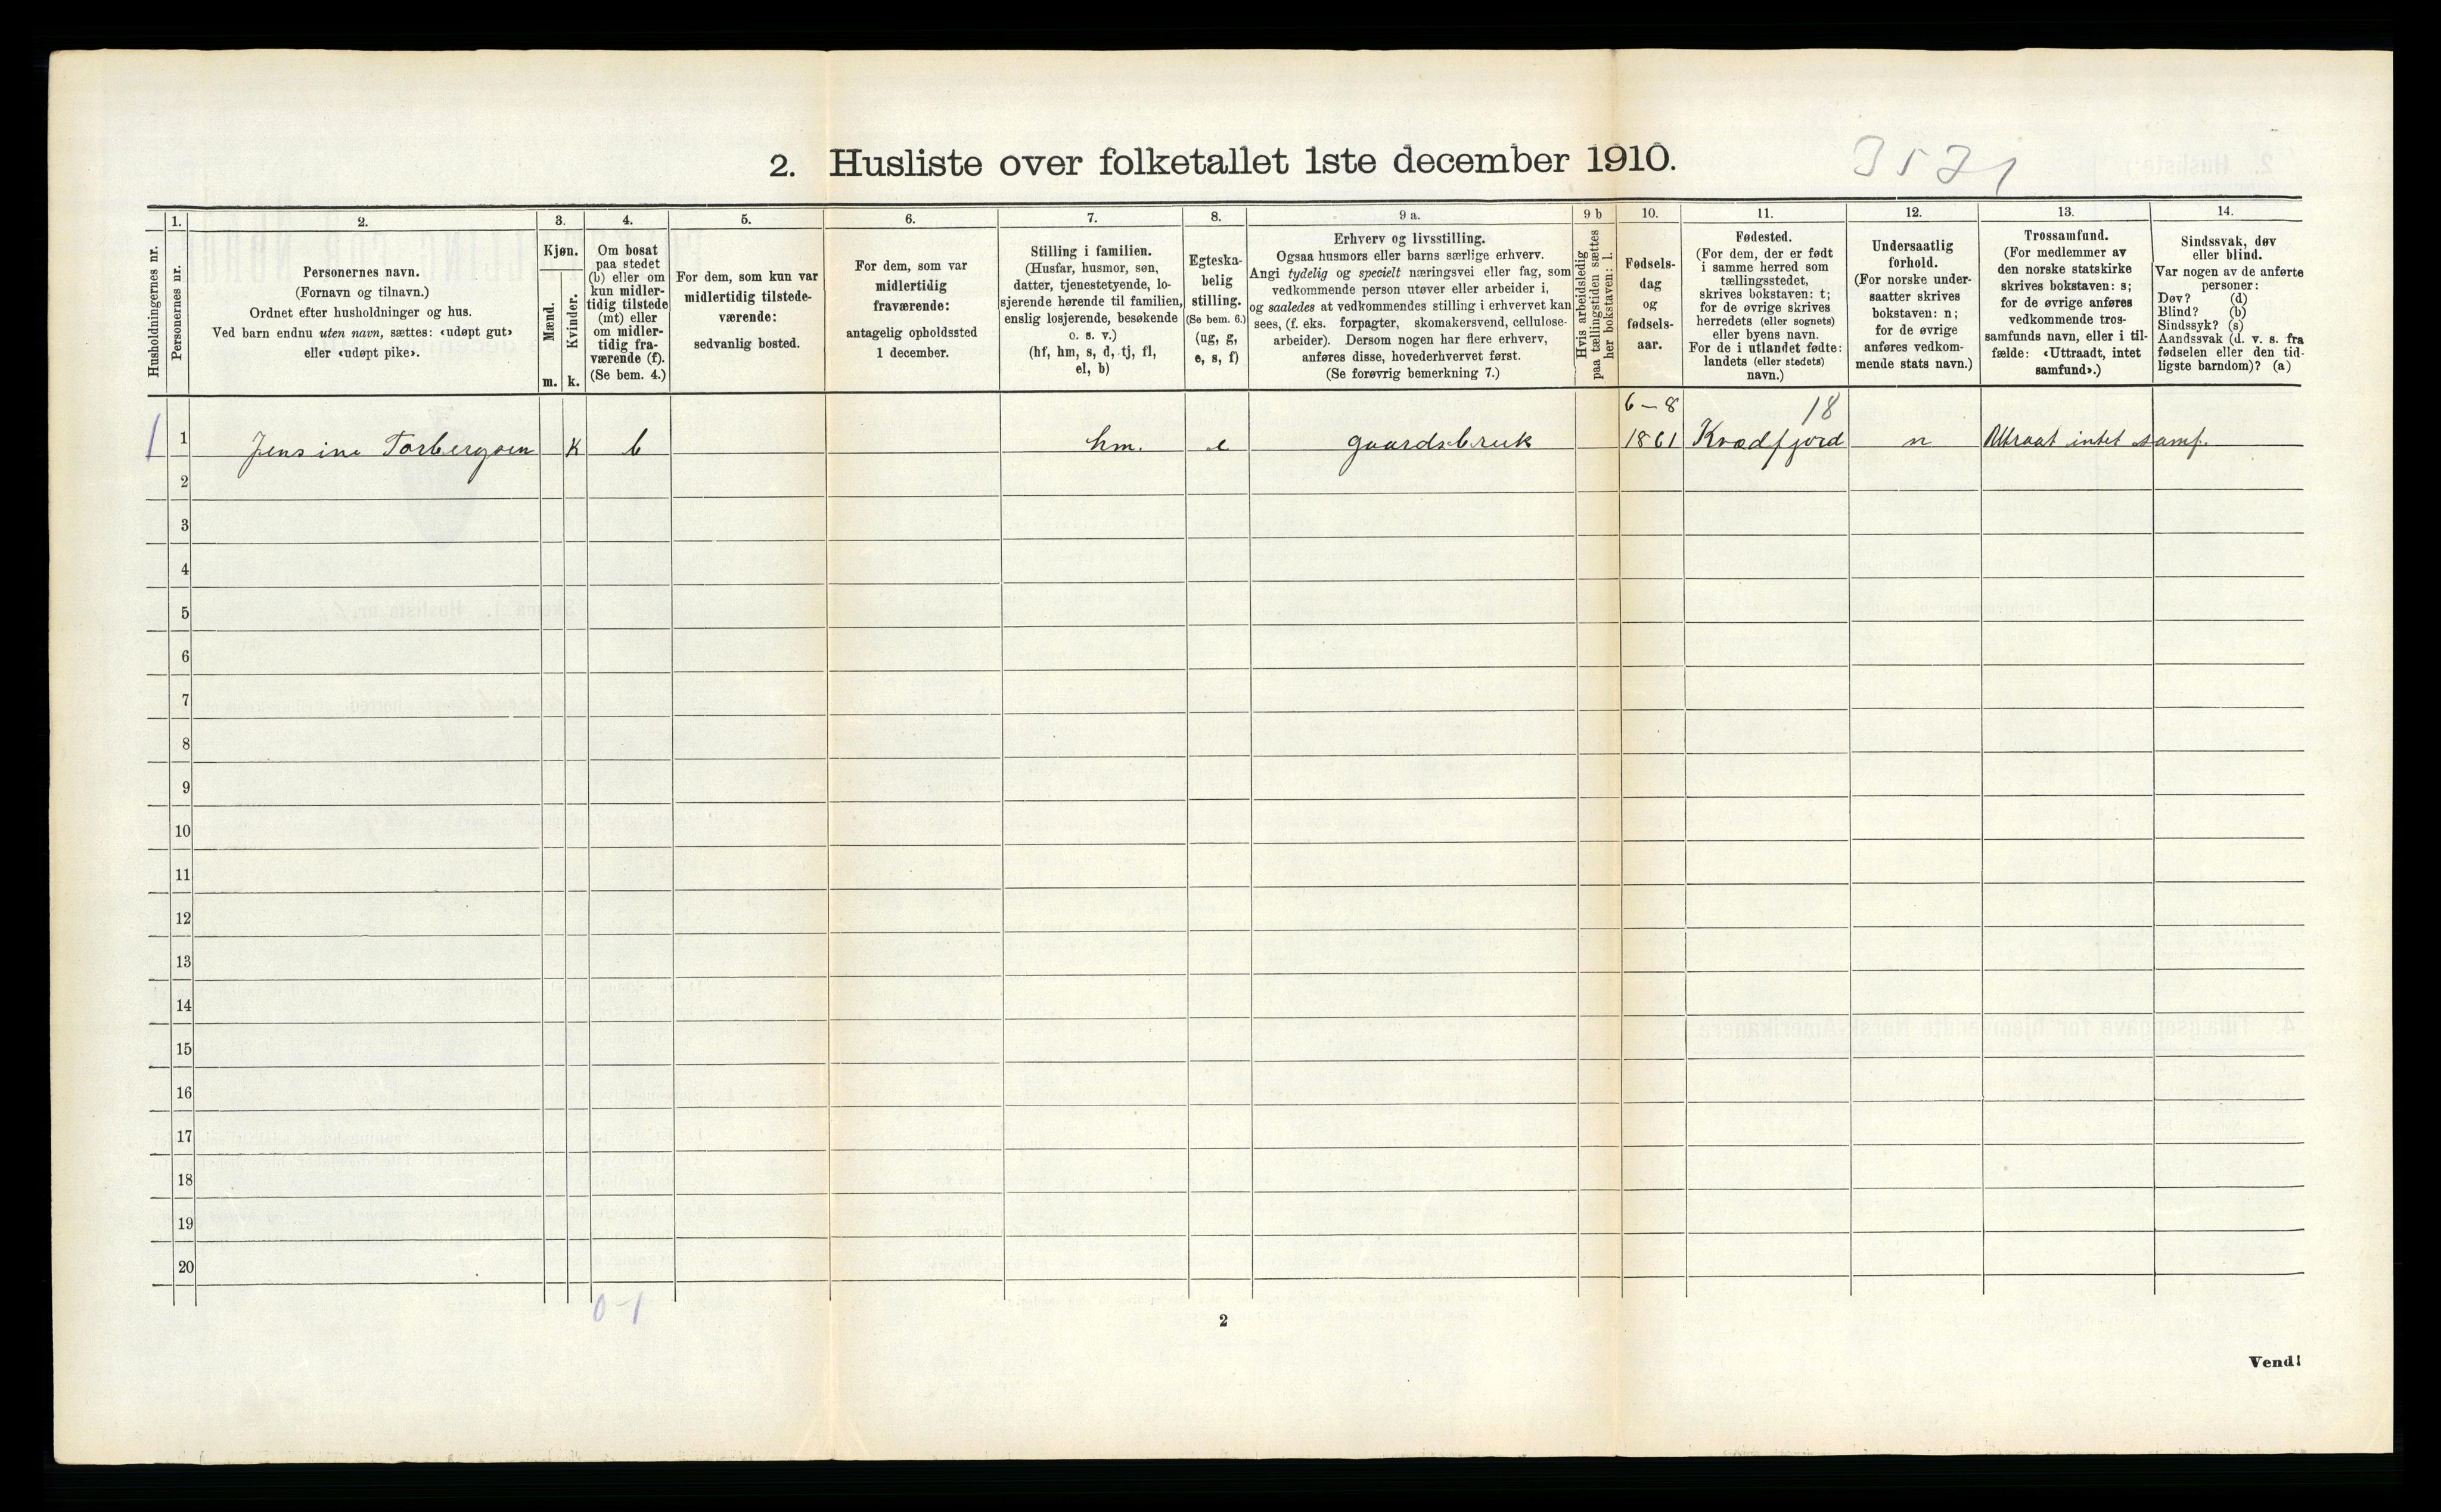 2. Husliste over folketallet 1ste december 1910.
Husholdningernes nr.
1.
Personernes nr.
2.
Personernes navn.
(Fornavn og tilnavn.)
Ordnet efter husholdninger og hus.
Ved barn endnu uten navn, sættes: «udøpt gut»
eller «udøpt pike».
3.
Kjøn.
Mænd.
Kvinder.
m. k.
4.
Om bosat
paa stedet
(b) eller om
kun midler-
tidig tilstede
(mt) eller
om midler-
tidig fra-
værende (f).
(Se bem. 4.)
5.
For dem, som kun var
midlertidig tilstede-
værende:
sedvanlig bosted.
6.
For dem, som var
midlertidig
fraværende:
antagelig opholdssted
1 december.
7.
Stilling i familien.
(Husfar, husmor, søn,
datter, tjenestetyende, lo-
sjerende hørende til familien,
enslig losjerende, besøkende
o. s. v.)
(hf, hm, s, d, tj, fl,
el, b)
8.
Egteska-
belig
stilling.
(Se bem. 6.)
(ug, g,
e, s, f)
9 a.
Erhverv og livsstilling.
Ogsaa husmors eller barns særlige erhverv.
Angi tydelig og specielt næringsvei eller fag, som
vedkommende person utøver eller arbeider i,
og saaledes at vedkommendes stilling i erhvervet kan
sees, (f. eks. forpagter, skomakersvend, cellulose-
arbeider). Dersom nogen har flere erhverv,
anføres disse, hovederhvervet først.
(Se forøvrig bemerkning 7.)
9 b
Hvis arbeidsledig
paa tællingstiden sættes
her bokstaven: l.
10.
Fødsels-
dag
og
fødsels-
aar.
11.
Fødested.
(For dem, der er født
i samme herred som
tællingsstedet,
skrives bokstaven: t;
for de øvrige skrives
herredets (eller sognets)
eller byens navn.
For de i utlandet fødte:
landets (eller stedets)
navn.)
12.
Undersaatlig
forhold.
(For norske under-
saatter skrives
bokstaven: n;
for de øvrige
anføres vedkom-
mende stats navn.)
13.
Trossamfund.
(For medlemmer av
den norske statskirke
skrives bokstaven: s;
for de øvrige anføres
vedkommende tros-
samfunds navn, eller i til-
fælde: «Uttraadt, intet
samfund».)
14.
Sindssvak, døv
eller blind.
Var nogen av de anførte
personer:
Døv? (d)
Blind? (b)
Sindssyk? (s)
Aandssvak (d. v. s. fra
fødselen eller den tid-
ligste barndom)? (a)
6 - 8 18
1 1 Jensine Torbergsen k b hm. e gaardsbruk 1861 Kvædfjord n Uttraat intet samf.
2
3
4
5
6
7
8
9
10
11
12
13
14
15
16
17
18
19
20
0-1
2
Vend!